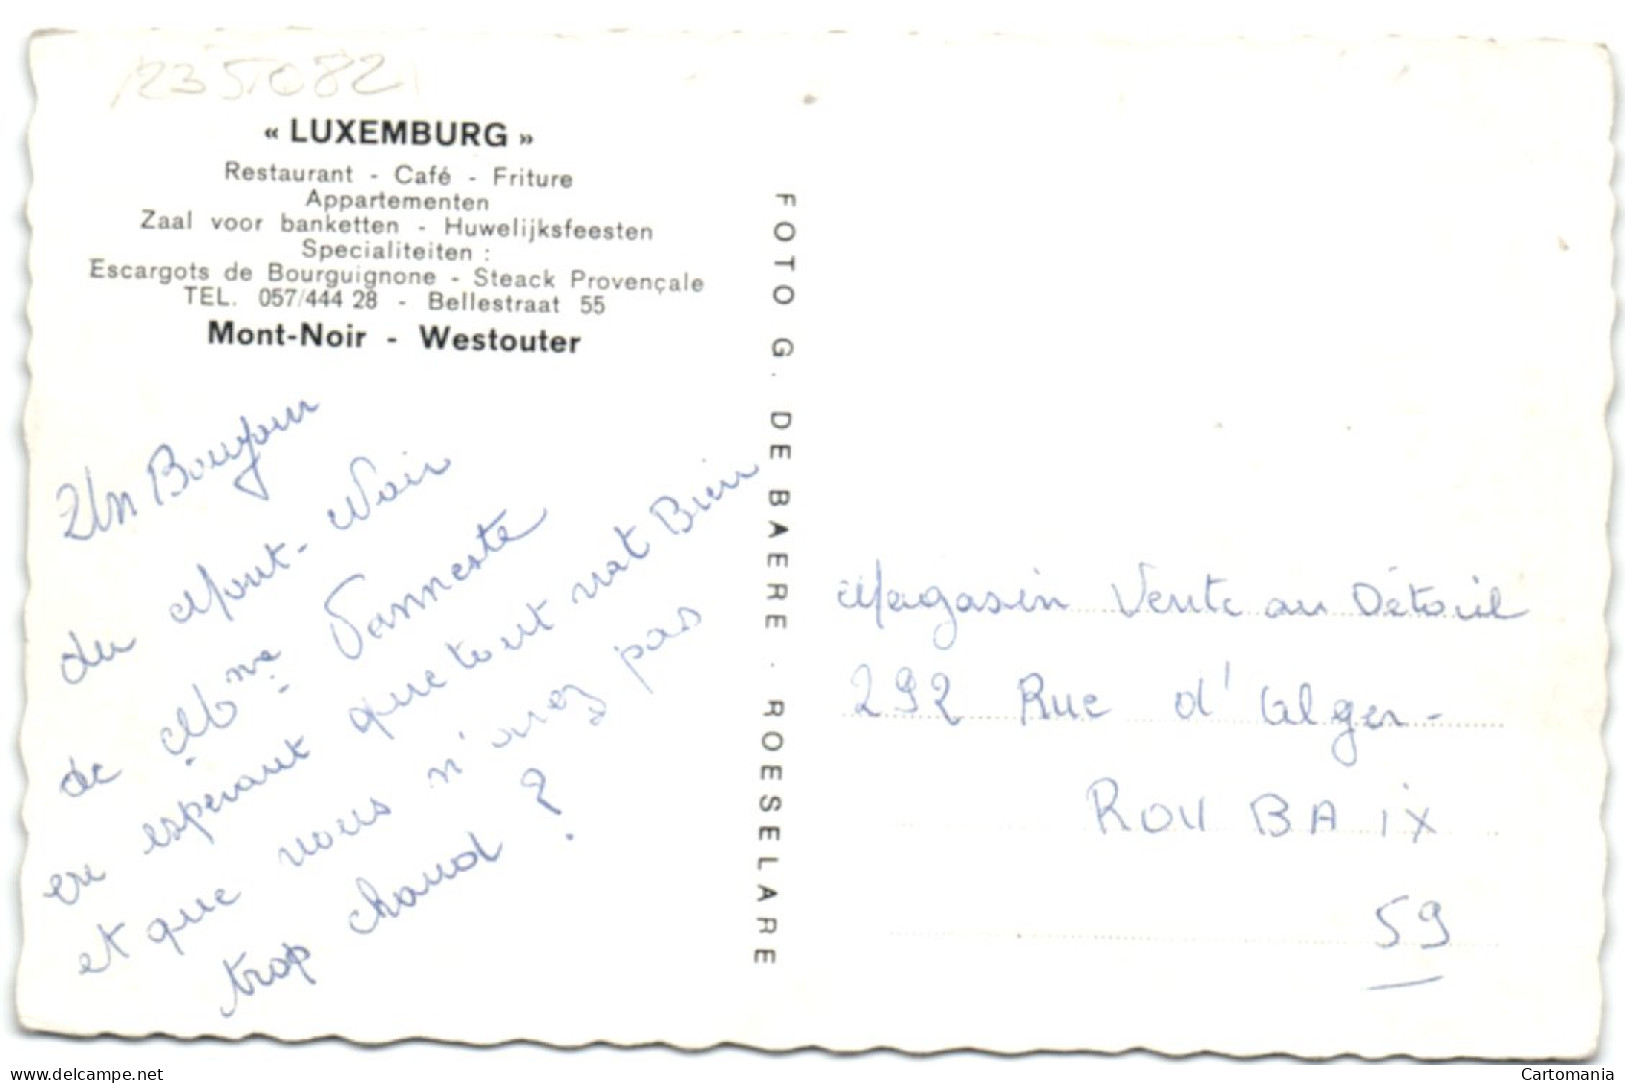 1235082
« LUXEMBURG »
Restaurant - Café - Friture
Appartementen
Zaal voor banketten - Huwelijksfeesten
Specialiteiten :
Escargots de Bourguignone - Steack Provençale
TEL. 057/444 28 - Bellestraat 55
Mont-Noir - Westouter
Un Bonjour
du Mont-Noir
de Mme Vanneste
en espérant que tout vat Bien
et que vous n'avez pas
trop chaud ?
FOTO G. DE BAERE . ROESELARE
Magasin Vente au Détail
292 Rue d'Alger-
ROUBAIX
59
www.delcampe.net
Cartomania